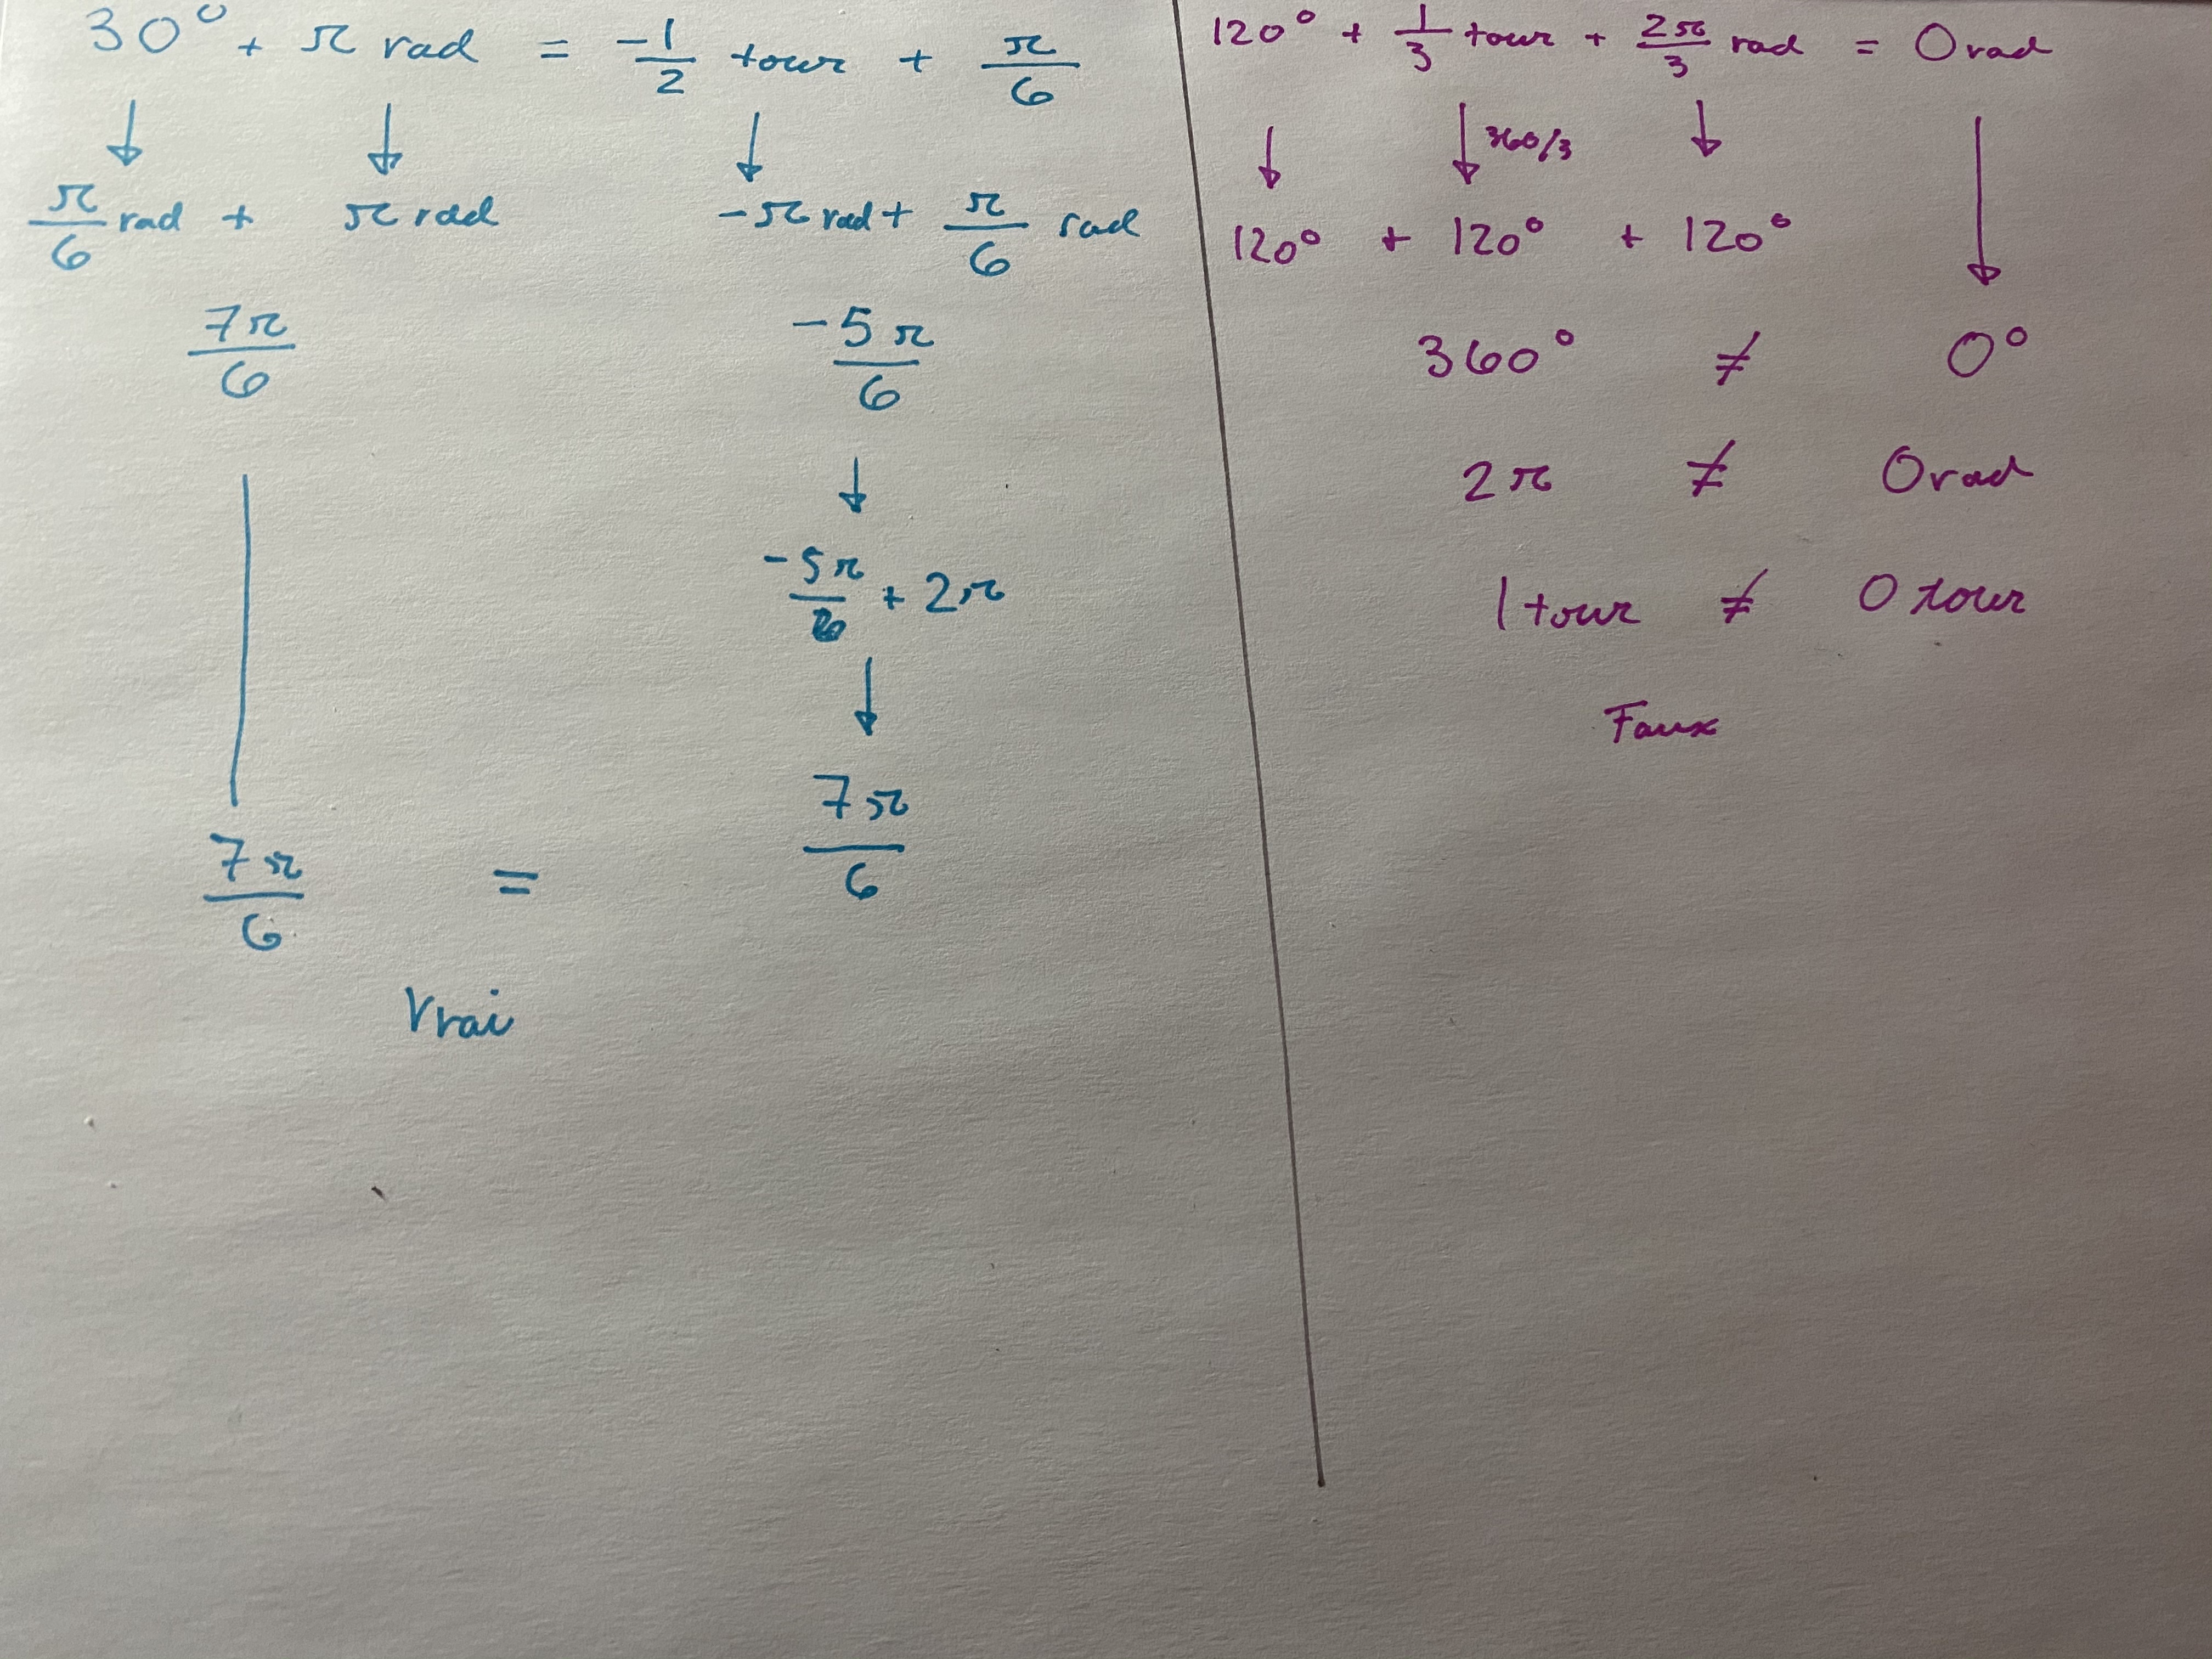 30° + π rad = -1/2 tour + π/6
π/6 rad + π rad -π rad + π/6 rad
7π/6 -5π/6
-5π/6 + 2π
7π/6 = 7π/6
Vrai
120° + 1/3 tour + 2π/3 rad = 0 rad
360/3
120° + 120° + 120°
360° ≠ 0°
2π ≠ 0 rad
1 tour ≠ 0 tour
Faux